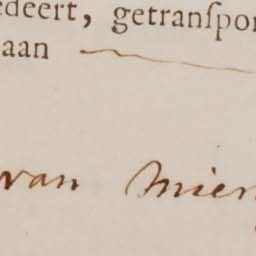 edeert, getranſpor
aan
van Mier